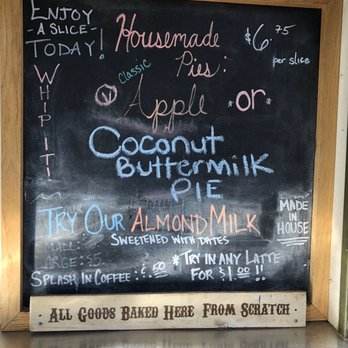 ENJOY
- A SLICE -
TODAY!
Housemade
Pies:
$6.75
per slice
WHIP IT!
Classic
Apple
*or*
Coconut
Buttermilk
PIE
TRY OUR ALMOND MILK
SWEETENED WITH DATES
MADE
IN
HOUSE
SMALL:
LARGE: $5
SPLASH IN COFFEE: $.50
*TRY IN ANY LATTE
FOR $1.00!!
ALL GOODS BAKED HERE FROM SCRATCH